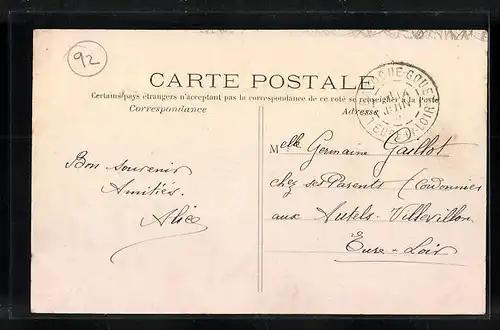 92
CARTE POSTALE
Certains pays étrangers n'acceptant pas la correspondance de ce coté se renseigner à la Poste
Correspondance
Adresse
EURE
LOIR
Bon souvenir
Amitiés.
Alice
Melle Germaine Gaillot
chez ses Parents (Cordonnier
aux Autels-Villevillon
Eure-Loir